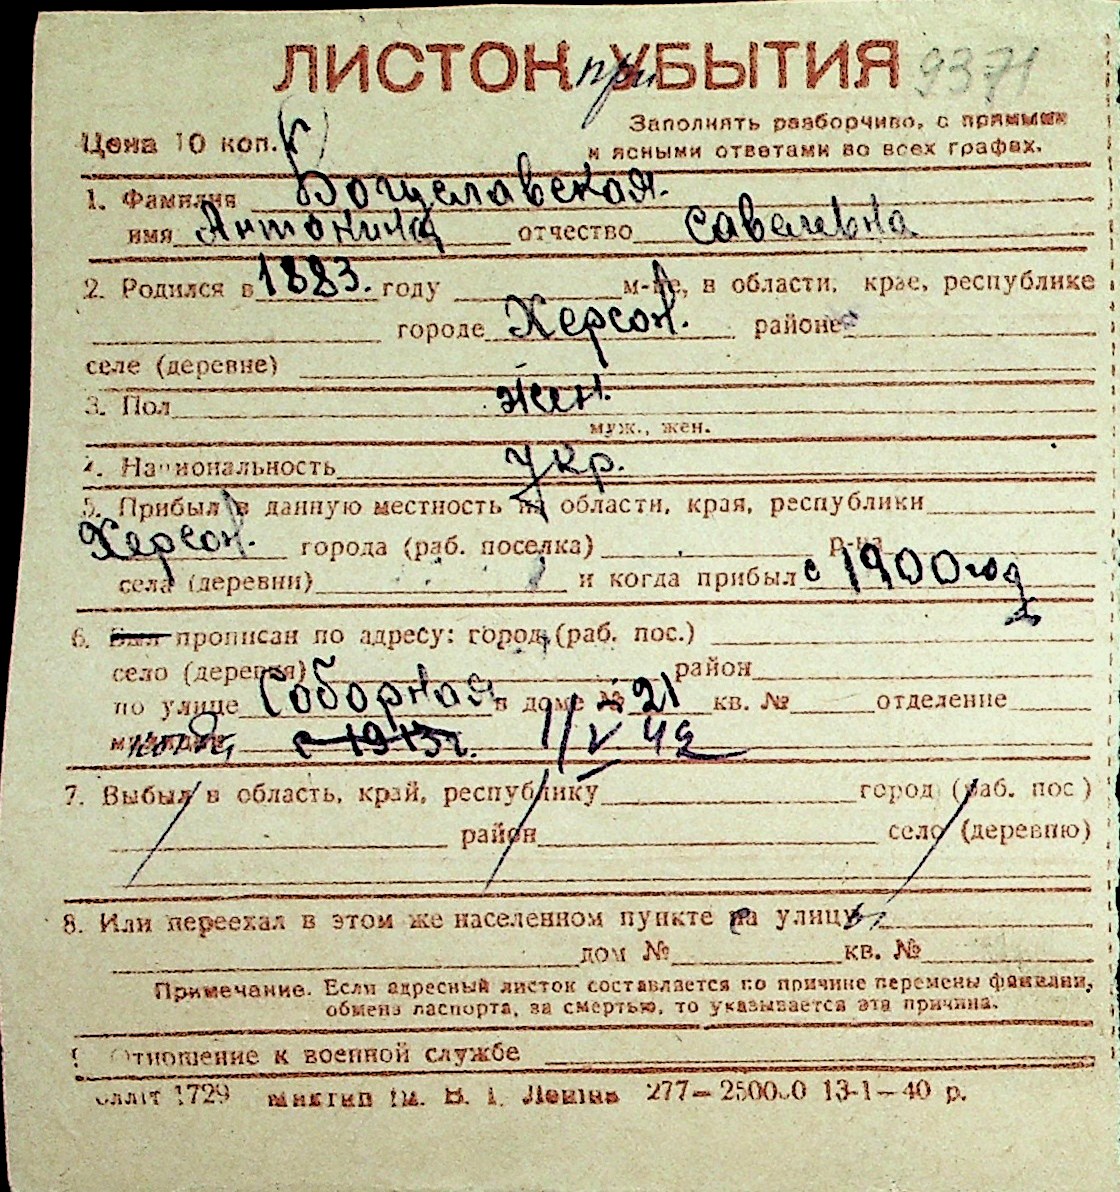 ЛИСТОК при УБЫТИЯ 9371
Заполнять разборчиво, с прямыми
Цена 10 коп. и ясными ответами во всех графах.
1. Фамилия Богуславская.
имя Антонина отчество Савелевна
2. Родился в 1883. году м-це, в области, крае, республике
городе Херсон. районе
селе (деревне)
3. Пол жен.
муж., жен.
4. Национальность укр.
5. Прибыл в данную местность из области, края, республики
Херсон. города (раб. поселка) р-на
села (деревни) и когда прибыл с 1900 год
6. Был прописан по адресу: город (раб. пос.)
село (деревня) район
по улице Соборная в доме № 21 кв. № отделение
когда с 1913 г. 1/V 42
7. Выбыл в область, край, республику город (раб. пос)
район село (деревню)
8. Или переехал в этом же населенном пункте на улицу
дом № кв. №
Примечание. Если адресный листок составляется по причине перемены фамилии,
обмена паспорта, за смертью, то указывается эта причина.
Отношение к военной службе
1729 им. В. І. Леніна 277— 250000 13-1—40 р.